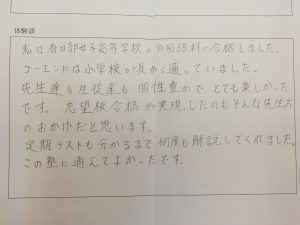 体験談
私は春日部女子高等学校の外国語科に合格しました。
コーエンには小学校の頃から通っていました。
先生達も生徒達も個性豊かで、とても楽しかった
です。志望校合格が実現したのもそんな先生方
のおかげだと思います。
定期テストも分かるまで何度も解説してくれました。
この塾に通えてよかったです。